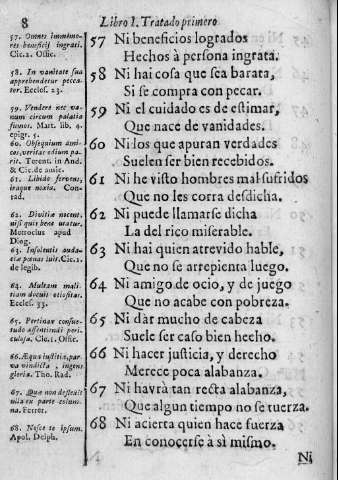 8 Libro I. Tratado primero
57. Omnes immemores beneficij ingrati. Cic. 2. Offic.
58. In vanitate sua apprehendetur peccator. Eccles. 23.
59. Vendere nec vanum circum palatia fumos. Mart. lib. 4. epigr. 5.
60. Obsequium amicos, veritas odium parit. Terent. in And. & Cic. de amic.
61. Libido fervens, iraque noxia. Conrad.
62. Divitiæ nocent, nisi quis bene utatur. Metroclus apud Diog.
63. Insolentis audaciæ pœnas luit. Cic. 2. de legib.
64. Multam malitiam docuit otiositas. Eccles. 33.
65. Pertinax consuetudo assentiendi periculosa. Cic. 1. Offic.
66. Æquus justitiæ, parva vindicta, ingens gloria. Tho. Rad.
67. Que non destruit ulla ex parte columna. Ferret.
68. Nosce te ipsum. Apol. Delph.
57 Ni beneficios logrados
Hechos à persona ingrata.
58 Ni hai cosa que sea barata,
Si se compra con pecar.
59 Ni el cuidado es de estimar,
Que nace de vanidades.
60 Ni los que apuran verdades
Suelen ser bien recebidos.
61 Ni he visto hombres mal sufridos
Que no les corra desdicha.
62 Ni puede llamarse dicha
La del rico miserable.
63 Ni hai quien atrevido hable,
Que no se arrepienta luego.
64 Ni amigo de ocio, y de juego
Que no acabe con pobreza.
65 Ni dar mucho de cabeza
Suele ser caso bien hecho.
66 Ni hacer justicia, y derecho
Merece poca alabanza.
67 Ni havrà tan recta alabanza,
Que algun tiempo no se tuerza.
68 Ni acierta quien hace fuerza
En conocerse à sì mismo.
Ni